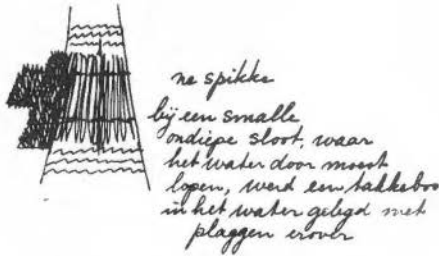 ne spikke
bij een smalle
ondiepe sloot, waar
het water door moest
lopen, werd een takkebos
in het water gelegd met
plaggen erover